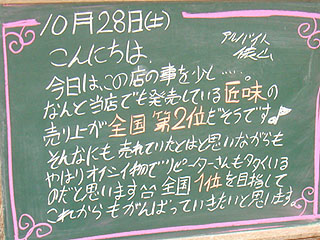 10月28日(土)
アルバイト
横山
こんにちは
今日は、この店の事を少し……。
なんと当店でも発売している匠味の
売り上が全国第2位だそうです♪
そんなにも売れていたとはと思いながらも
やはりオイシイ物で…リピーターさんも多いくいる
のだと思います^^ 全国1位を目指して
これからもがんばっていきたいと思います。